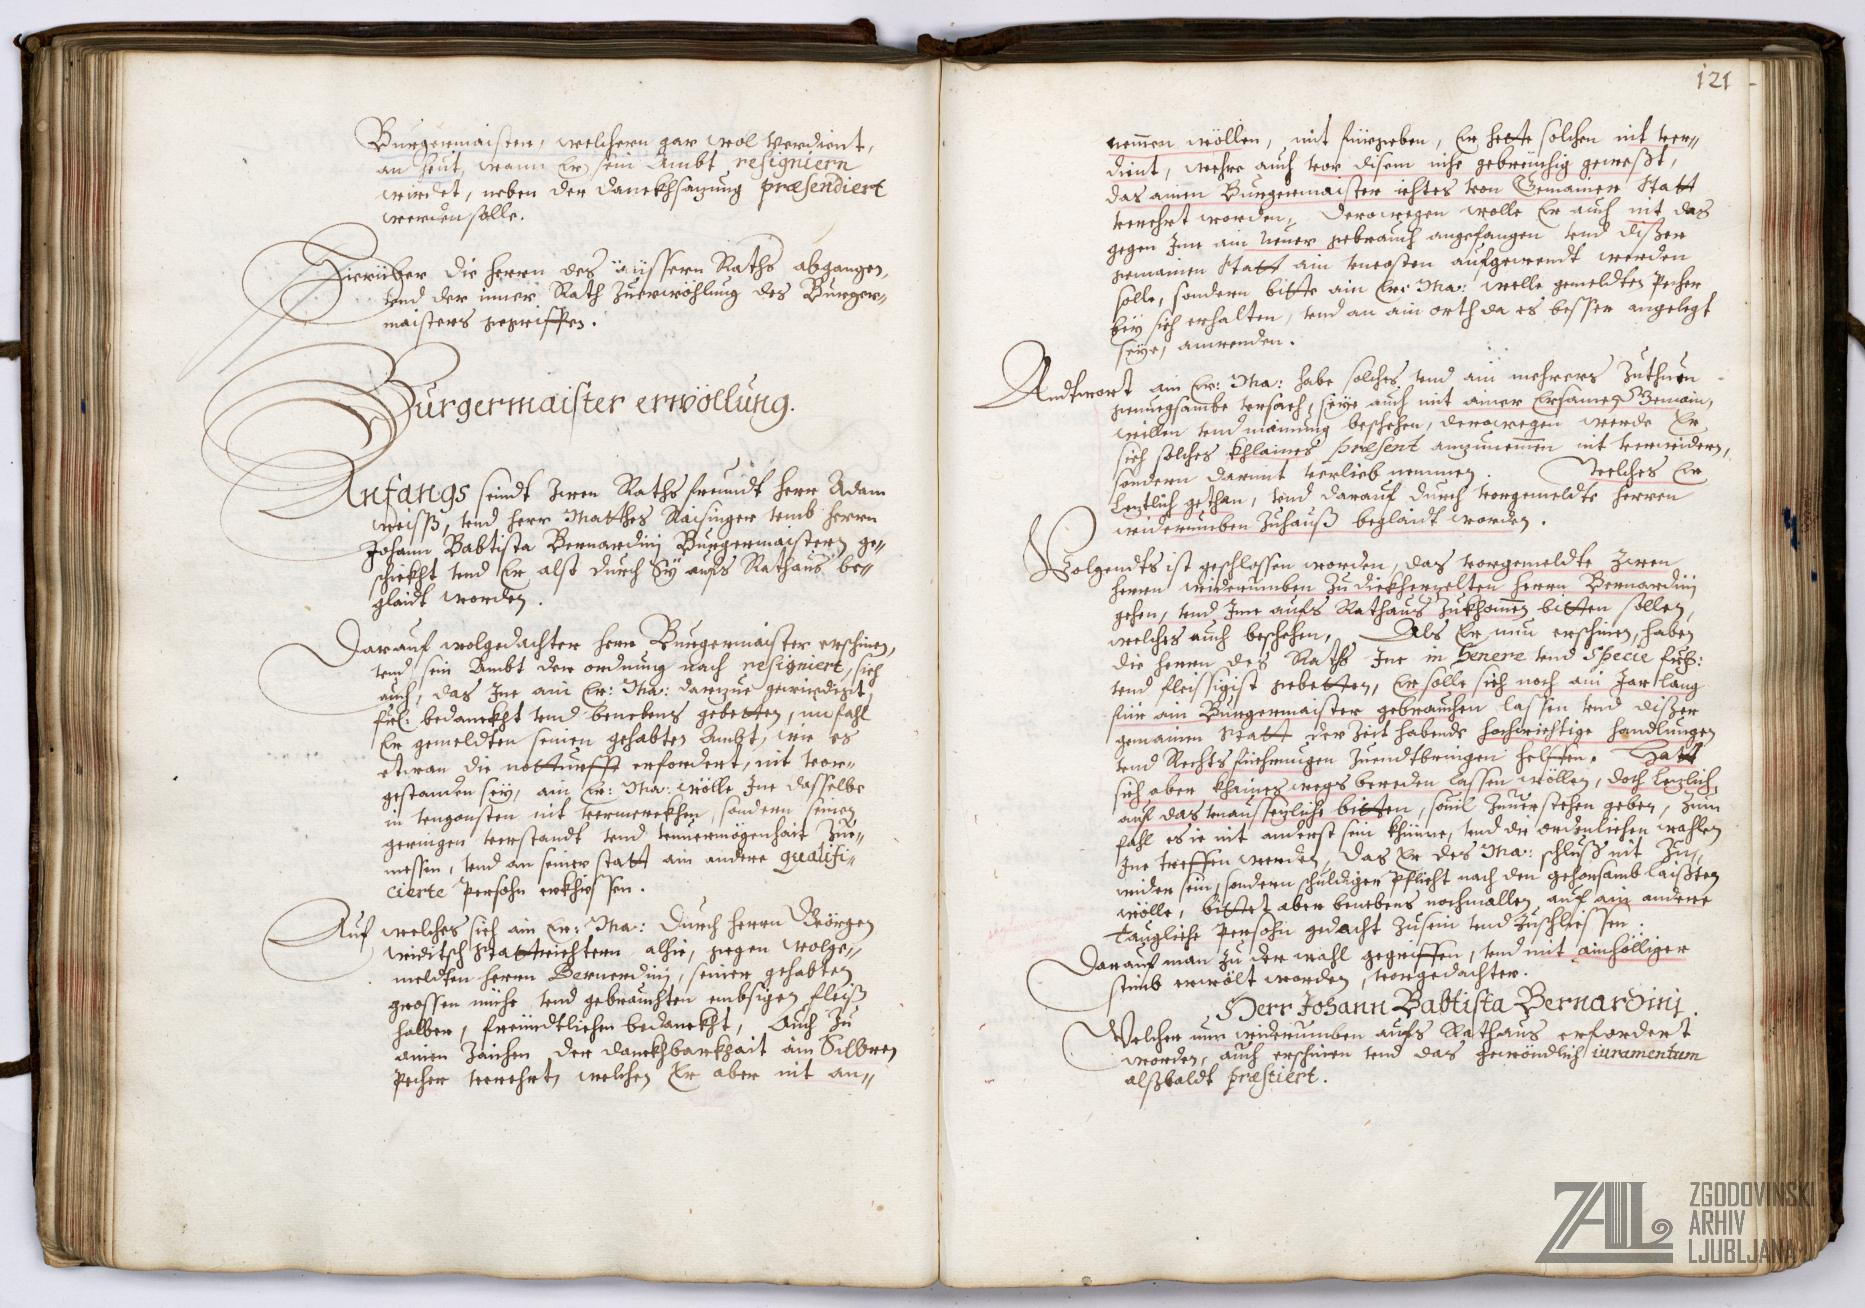 Burgermaistern, welchem gar wol verdient,
an heut, wann Er sein Ambt resigniern
würdet, neben der danckhsagung præsendiert
werden solle.
Hierüber die herrn des äüssern Raths abgangen,
vnd der inner Rath zuerwöhlung des Burger=
maisters gegriffen.
Burgermaister erwöllung.
Anfangs seindt zwen Rathsfreundt herr Adam
Weiss, vnd herr Matthes Raisinger vmb herrn
Johann Babtista Bernardinj Burgermaistern ge=
schickht vnd Er also durch Sÿ aufs Rathaus be=
glaidt worden.
Darauf wolgedachter herr Burgermaister erschinen,
vnd sein Ambt der ordnung nach resigniert, sich
auch, das Ime ain Er: Ma: darzue gewürdigt
bedanckht vnd benebens gebetten, im fahl
Er gemeldten seinen gehabten Ambt, wie es
etwan die notturfft erfordert, nit vor=
gestanden seÿ, ain Er: Ma: wölle Ime dasselbe
in vngonsten nit vermerckhen, sondern seinen
geringen verstandt vnd vnuermögenhait zue=
messen, vnd an seiner statt ain andere qualifi=
cierte Persohn erkhiessen.
Auf welches sich ain Er: Ma: durch herrn Geörgen
Stattrichtern alhie, gegen wolge=
meldten herrn Bernardinj, seiner gehabten
grossen mühe vnd gebrauchten embsigen fleiss
halber, freündtlichen bedanckht, Auch zu
ainen zaichen der danckhbarkhait ain Silbren
Pecher verehrt, welchen Er aber nit an=
121
nemen wöllen, mit fürgeben, Er hette solchen nit ver=
dient, wehre auch vor disem nihe gebreuchig gewest,
das ainen Burgermaister ichtes von Gemainer Statt
verehrt worden, derowegen wolle Er auch nit das
gegen Ime ain neuer gebrauch angefangen vnd diser
gemainen Statt ain vncosten aufgewendt werden
solle, sondern bitte ain Er: Ma: welle gemeldten Pecher
beÿ sich erhalten, vnd an ain orth da es besser angelegt
seÿe, anwenden.
Andtwort ain Er: Ma: habe solches vnd ain mehrers zuthuen
genuegsambe vrsach, seÿe auch mit ainer Ersamen Gemain,
willen vnd mainung beschehen, derowegen werde Er
sich solches khlaines præsent anzunemen nit verwidern,
sondern darmit verlieb nemmen. Welches Er
letzlich gethan, vnd darauf durch vorgemeldte herren
widerumben zuhauss beglaidt worden.
Volgendts ist geschlossen worden, das vorgemeldte zwen
herrn widerumben zu dickherzelten herrn Bernardinj
gehen, vnd Ime aufs Rathaus zukhomen bitten sollen,
welches auch beschehen, Als Er nun erschinen, haben
die herrn des Raths Ine in Genere vnd Specie
vnd fleissigist gebetten, Er solle sich noch ain Jar lang
für ain Burgermaister gebrauchen lassen vnd diser
gemainen Statt der zeit habende hochwichtige handlungen
vnd Rechtsfüehrungen zuendtbringen helffen. Hatt
sich aber khaines wegs bereden lassen wöllen, doch letzlich,
auf das vnaussetzliche bitten, souil zuuerstehen geben, zum
fahl es ie nit anderst sein khünne, vnd die ordenlichen wahlen
Ine treffen werden, das Er des Ma: schluss nit zu=
wider sein, sondern schuldiger Pflicht nach den gehorsamb laisten
wölle, bittet aber benebens nochmallen auf ain andere
taugliche Persohn gedacht zusein vnd zuschliessen.
Darauf man zu der wahl gegriffen, vnd mit ainhölliger
stimb erwölt worden, vorgedachter.
Herr Johann Babtista Bernardinj.
Welcher nun widerumben aufs Rathaus erfordert
worden, auch erschinen vnd das gewöndlich iuramentum
alssbaldt præstiert.
ZAL
ZGODOVINSKI
ARHIV
LJUBLJANA